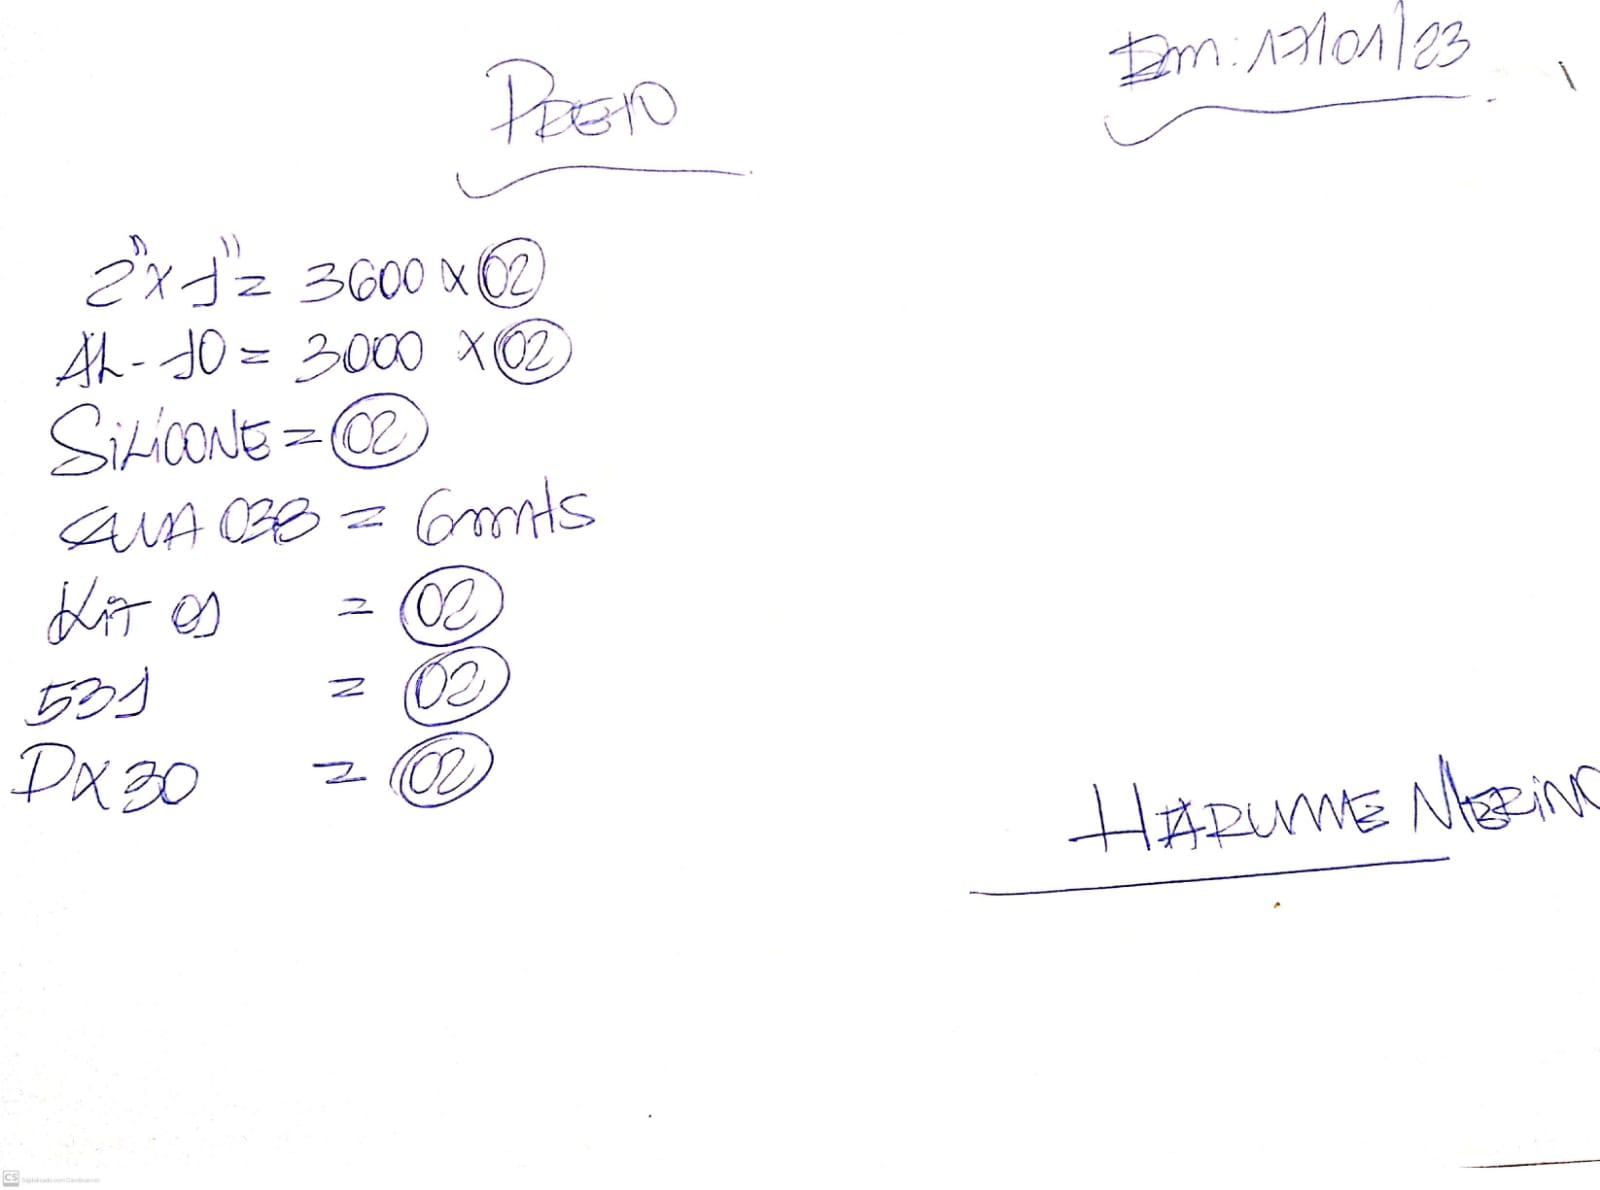 PRETO
Em: 17/01/23
2"x1" = 3600 x 02
AL-10 = 3000 x 02
SiLiCONE = 02
SUA 038 = 6 mts
KiT 01 = 02
531 = 02
DX30 = 02
HARUME MERiNO
CS Digitalizado com CamScanner